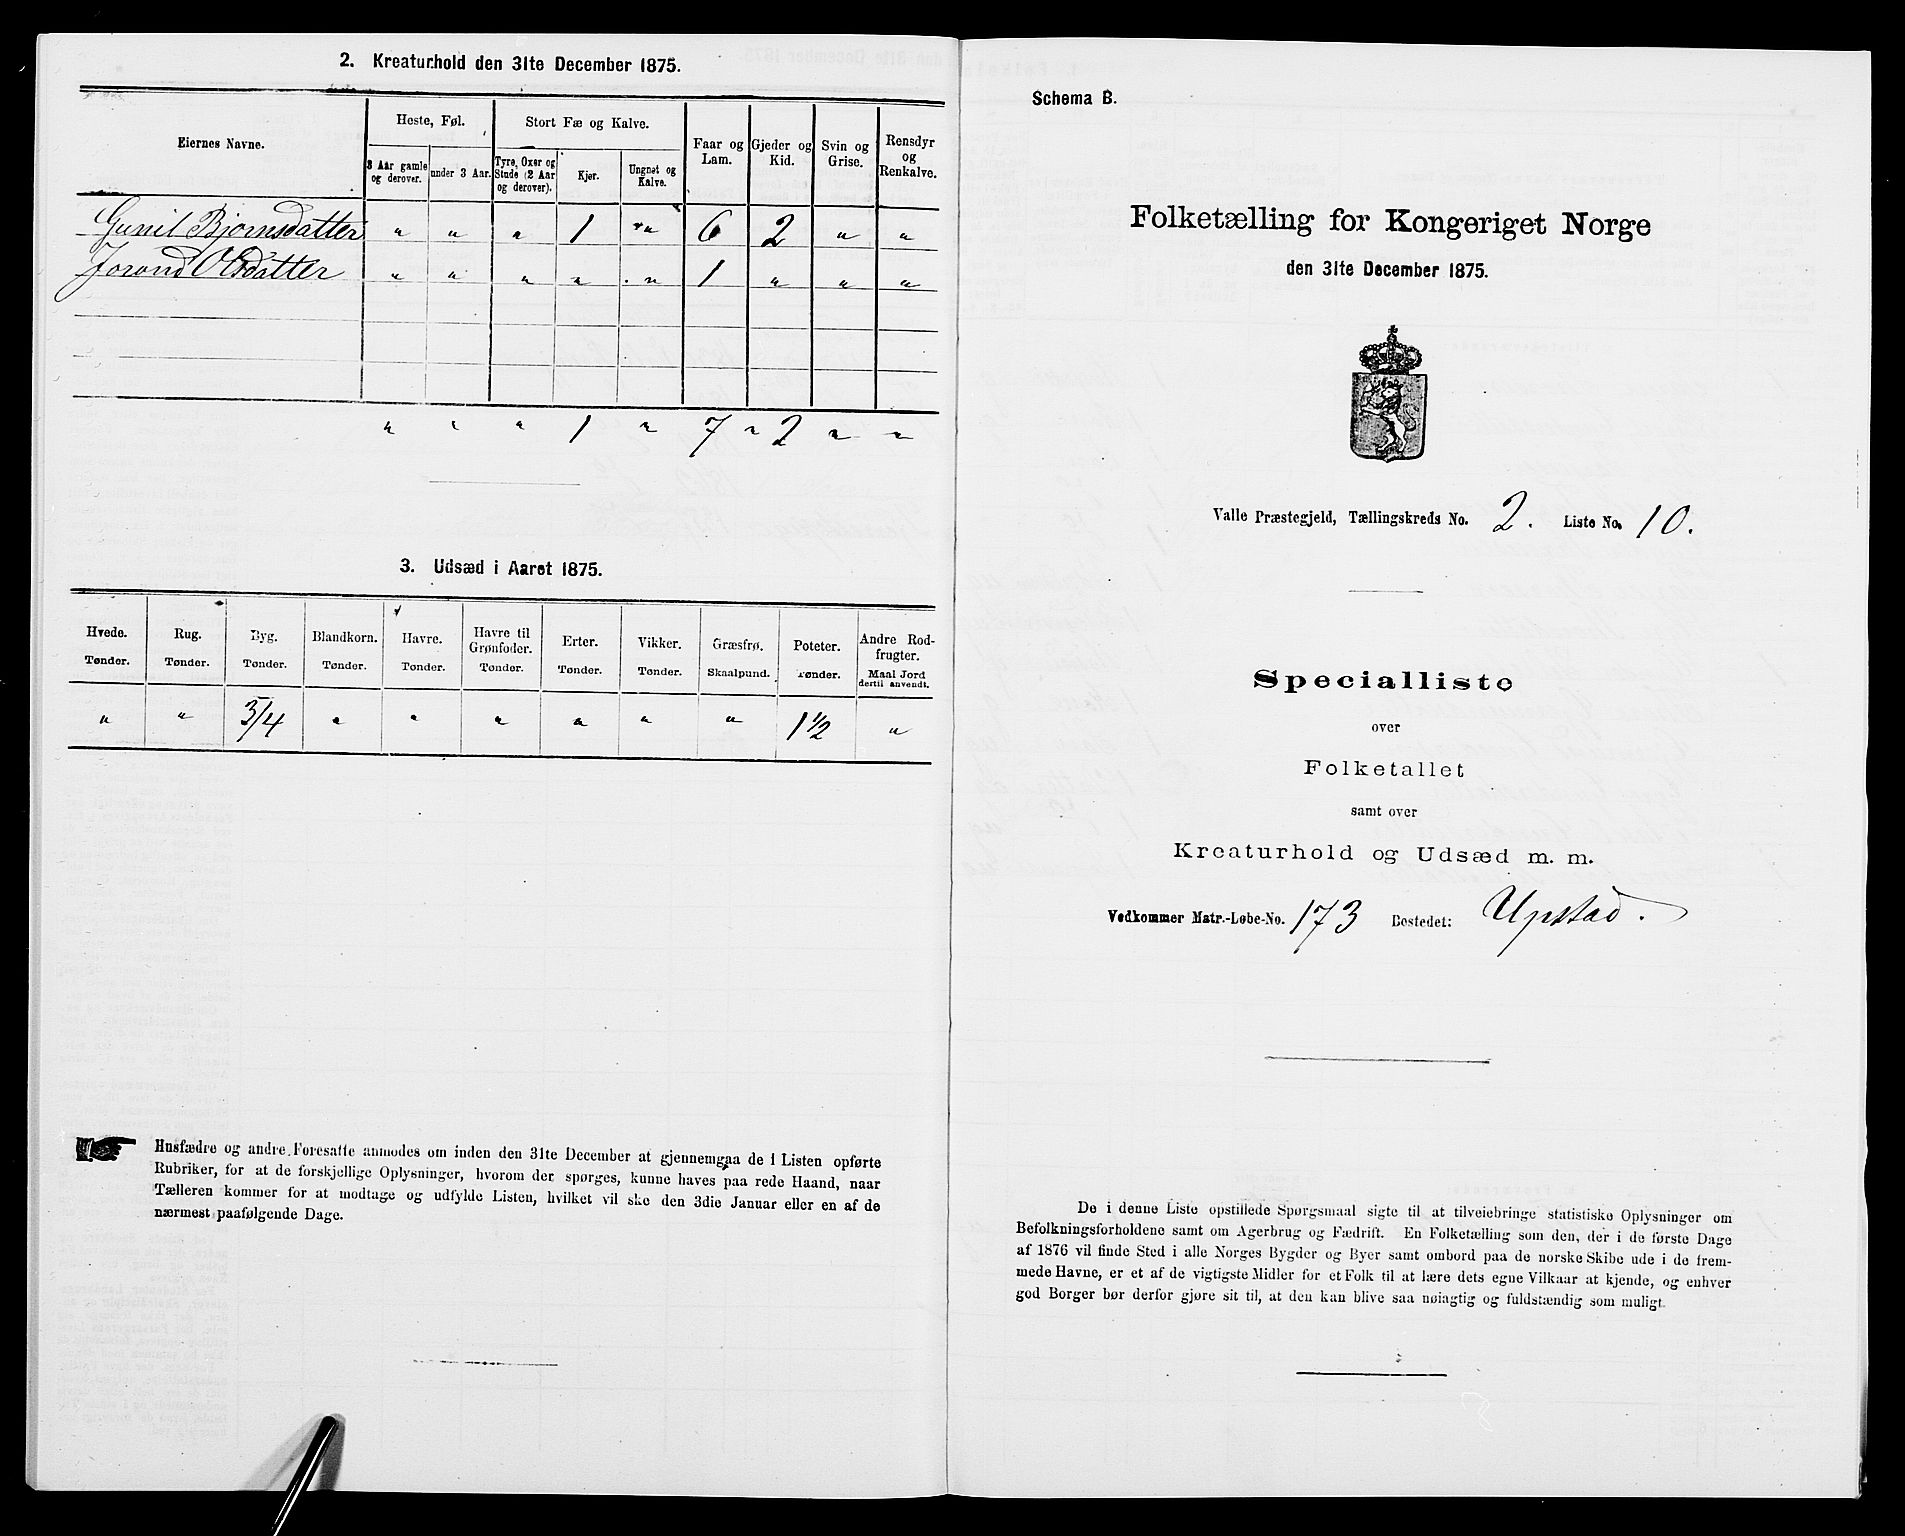 2. Kreaturhold den 31te December 1875.
Eiernes Navne.
Heste, Føl.
Stort Fæ og Kalve.
Faar og Lam.
Gjeder og Kid.
Svin og Grise.
Rensdyr og Renkalve.
3 Aar gamle og derover.
under 3 Aar.
Tyre, Oxer og Stude (2 Aar og derover).
Kjør.
Ungnøt og Kalve.
Gunil Bjornsdatter " " " 1 " 6 2 " "
Jorond Olsdatter " " " " " 1 " " "
" " " 1 " 7 " 2 " "
3. Udsæd i Aaret 1875.
Hvede. Rug. Byg. Blandkorn. Havre. Havre til Grønfoder. Erter. Vikker. Græsfrø. Poteter. Andre Rodfrugter.
Tønder. Tønder. Tønder. Tønder. Tønder. Tønder. Tønder. Tønder. Skaalpund. Tønder. Maal Jord dertil anvendt.
" " 3/4 " " " " " " 1 1/2 "
Husfædre og andre Foresatte anmodes om inden den 31te December at gjennemgaa de i Listen opførte
Rubriker, for at de forskjellige Oplysninger, hvorom der spørges, kunne haves paa rede Haand, naar
Tælleren kommer for at modtage og udfylde Listen, hvilket vil ske den 3die Januar eller en af de
nærmest paafølgende Dage.
Schema B.
Folketælling for Kongeriget Norge
den 31te December 1875.
Valle Præstegjeld, Tællingskreds No. 2. Liste No. 10.
Specialliste
over
Folketallet
samt over
Kreaturhold og Udsæd m. m.
Vedkommer Matr.-Løbe-No. 173 Bostedet: Upstad.
De i denne Liste opstillede Spørgsmaal sigte til at tilveiebringe statistiske Oplysninger om
Befolkningsforholdene samt om Agerbrug og Fædrift. En Folketælling som den, der i de første Dage
af 1876 vil finde Sted i alle Norges Bygder og Byer samt ombord paa de norske Skibe ude i de frem-
mede Havne, er et af de vigtigste Midler for et Folk til at lære dets egne Vilkaar at kjende, og enhver
god Borger bør derfor gjøre sit til, at den kan blive saa nøiagtig og fuldstændig som muligt.